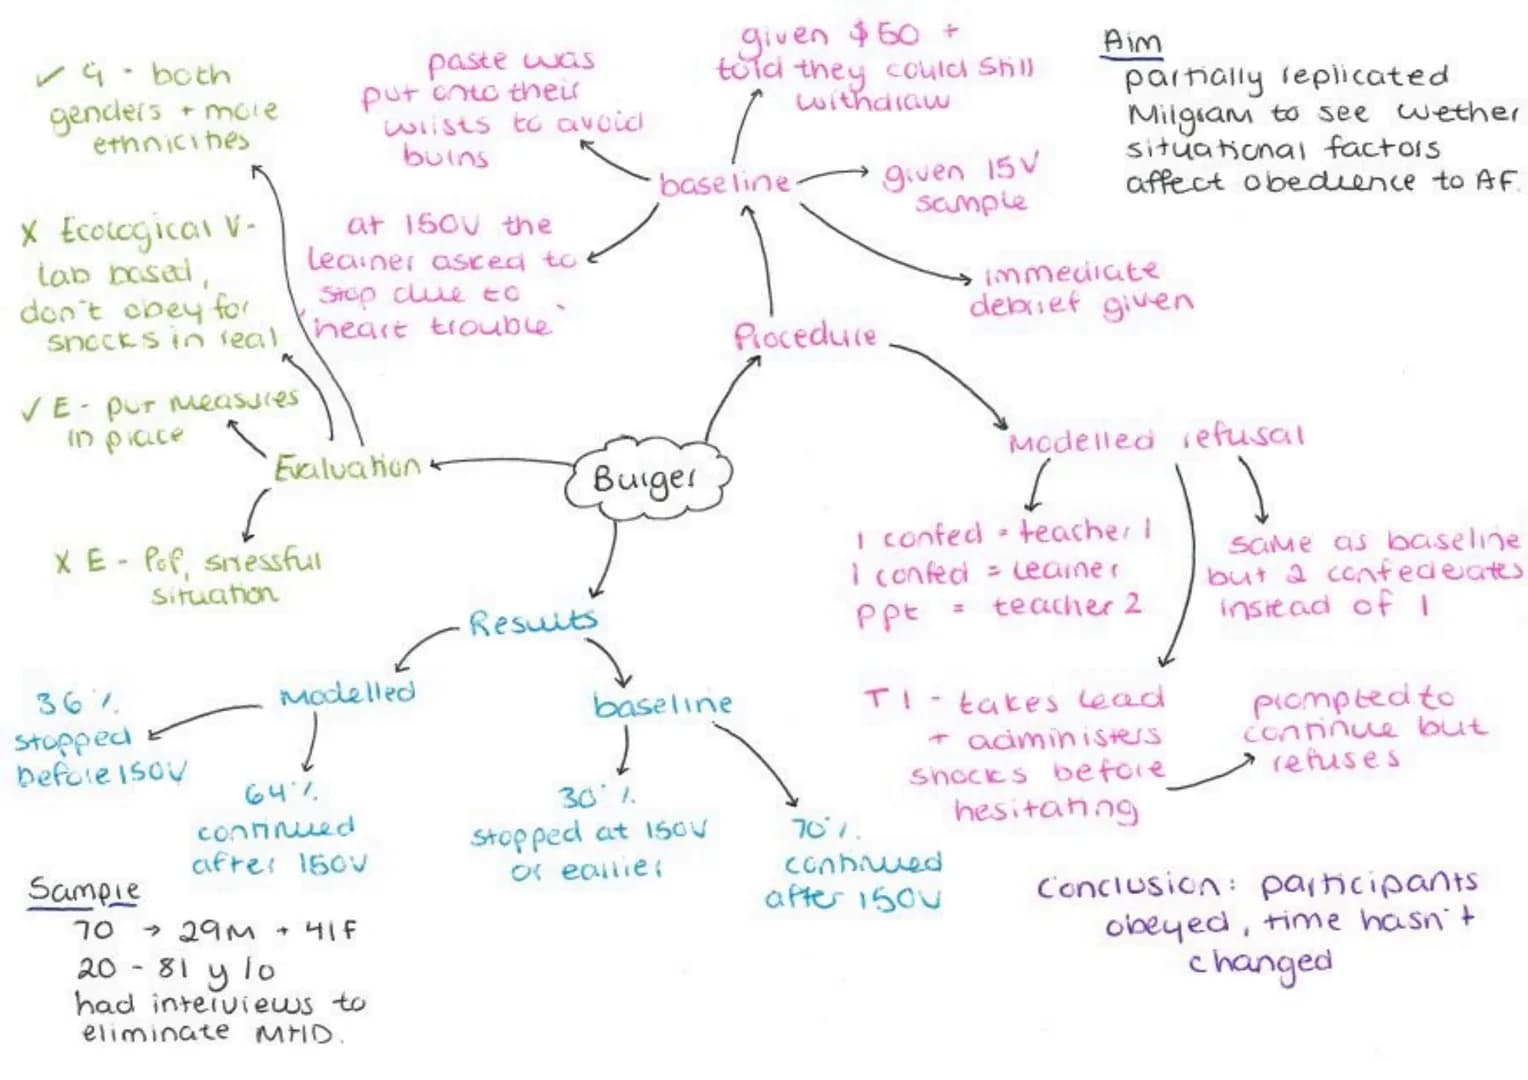 ✓ G - both
genders + more
ethnicities
X Ecological V -
lab based,
don't obey for
shocks in real
✓ E - put measures
in place
Evaluation
X E - PofP, stressful
situation
paste was
put onto their
wrists to avoid
burns
given $50 +
told they could still
withdraw
baseline
given 15V
sample
at 150V the
learner asked to
stop due to
'heart trouble'
immediate
debrief given
Procedure
Aim
partially replicated
Milgram to see wether
situational factors
affect obedience to AF.
Burger
Modelled refusal
1 confed = teacher 1
1 confed = learner
ppt = teacher 2
same as baseline
but 2 confederates
instead of 1
T1 - takes lead
+ administers
shocks before
hesitating
prompted to
continue but
refuses
Results
Modelled
36%
stopped
before 150V
64%
continued
after 150V
baseline
30%
stopped at 150V
or earlier
70%
continued
after 150V
Sample
70 → 29M + 41F
20 - 81 y/o
had interviews to
eliminate MHD.
Conclusion: participants
obeyed, time hasn't
changed